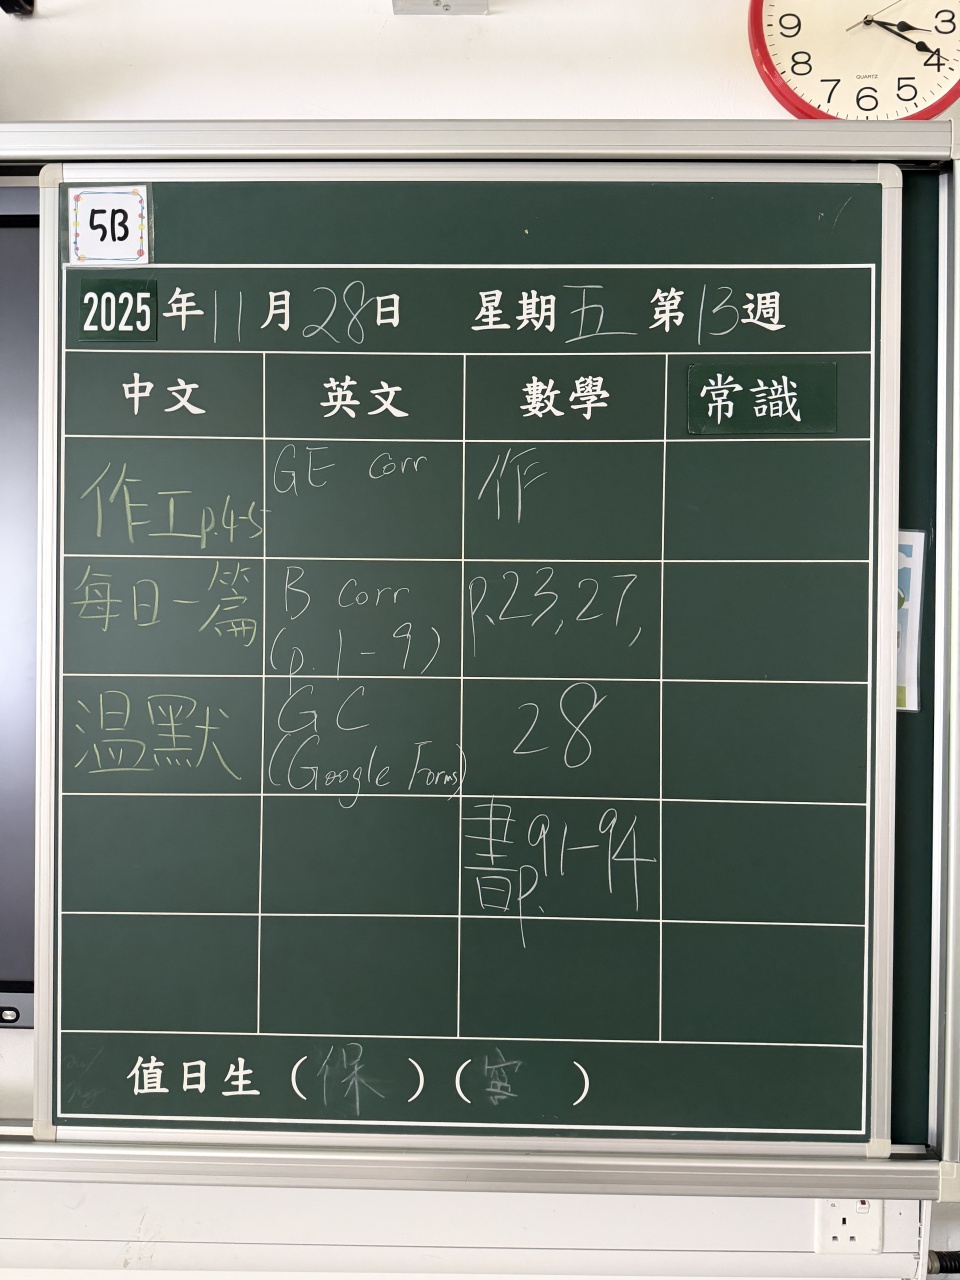 9 3 8 4 7 6 5
QUARTZ
5B
2025年11月28日 星期五 第13週
中文 英文 數學 常識
作工p.4-5 GE corr 作
每日一篇 B corr (p. 1-9) p.23,27,
溫默 GC (Google Forms) 28
書p.91-94
值日生（保）（ ）